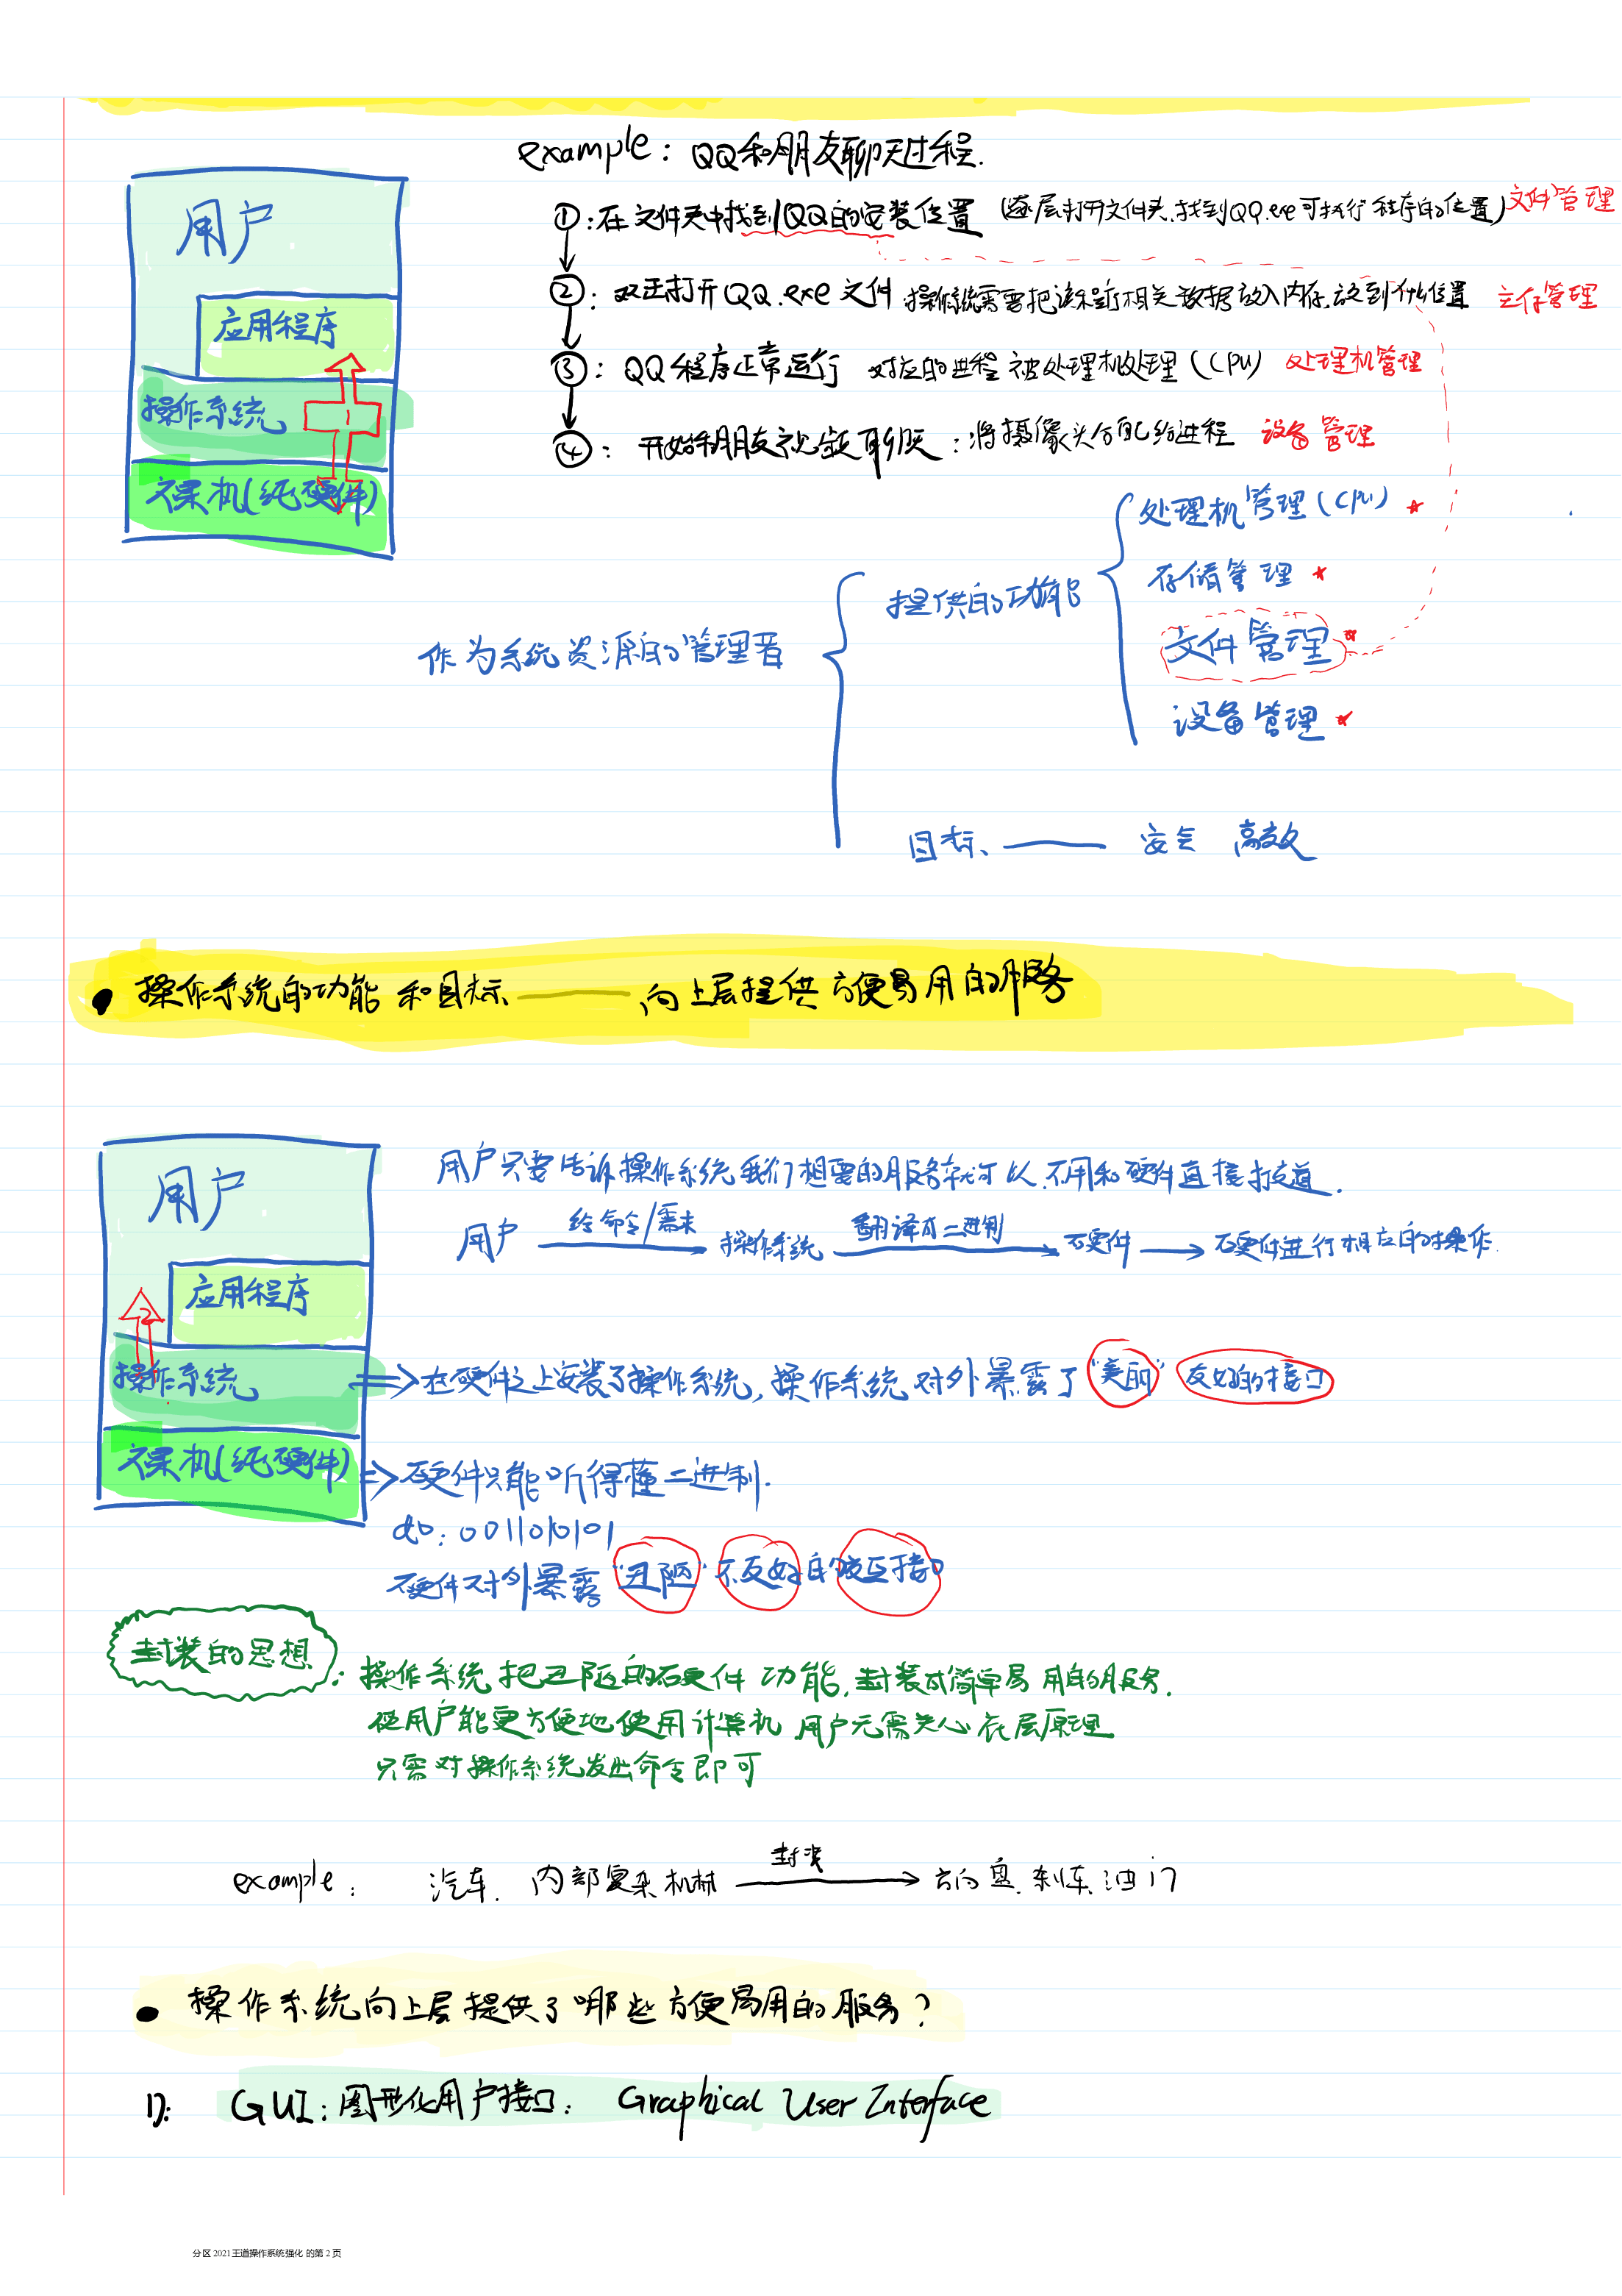 example: QQ和朋友聊天过程.
①:在文件夹中找到QQ的安装位置 (逐层打开文件夹.找到QQ.exe可执行程序的位置) 文件管理
②: 双击打开QQ.exe文件 操作系统需要把该程序相关数据放入内存.放到什么位置 存管理
③: QQ程序正常运行 对应的进程被处理机处理(CPU) 处理机管理
④: 开始和朋友视频聊天:将摄像头分配给进程 设备管理
用户
应用程序
操作系统
1
裸机(纯硬件)
作为系统资源的管理者
提供的功能
处理机管理(CPU)
存储管理
文件管理
设备管理
目标 —— 安全 高效
操作系统的功能和目标 —— 向上层提供方便易用的服务
用户
应用程序
2
操作系统
裸机(纯硬件)
用户只要告诉操作系统我们想要的服务就可以.不用和硬件直接打交道.
用户 给命令/需求 操作系统 翻译成二进制 硬件 → 硬件进行相应的操作.
⇒在硬件之上安装了操作系统,操作系统对外暴露了"美丽" 友好的接口
⇒硬件只能听得懂二进制.
如:001101010101
硬件对外暴露"丑陋"不友好的交互接口
封装的思想:操作系统把丑陋的硬件功能,封装成简单易用的服务.
使用户能更方便地使用计算机.用户无需关心底层原理
只需对操作系统发出命令即可
example: 汽车. 内部复杂机械 封装 → 方向盘.刹车.油门
操作系统向上层提供了哪些方便易用的服务?
1): GUI:图形化用户接口: Graphical User Interface
分区 2021王道操作系统强化 的第 2 页